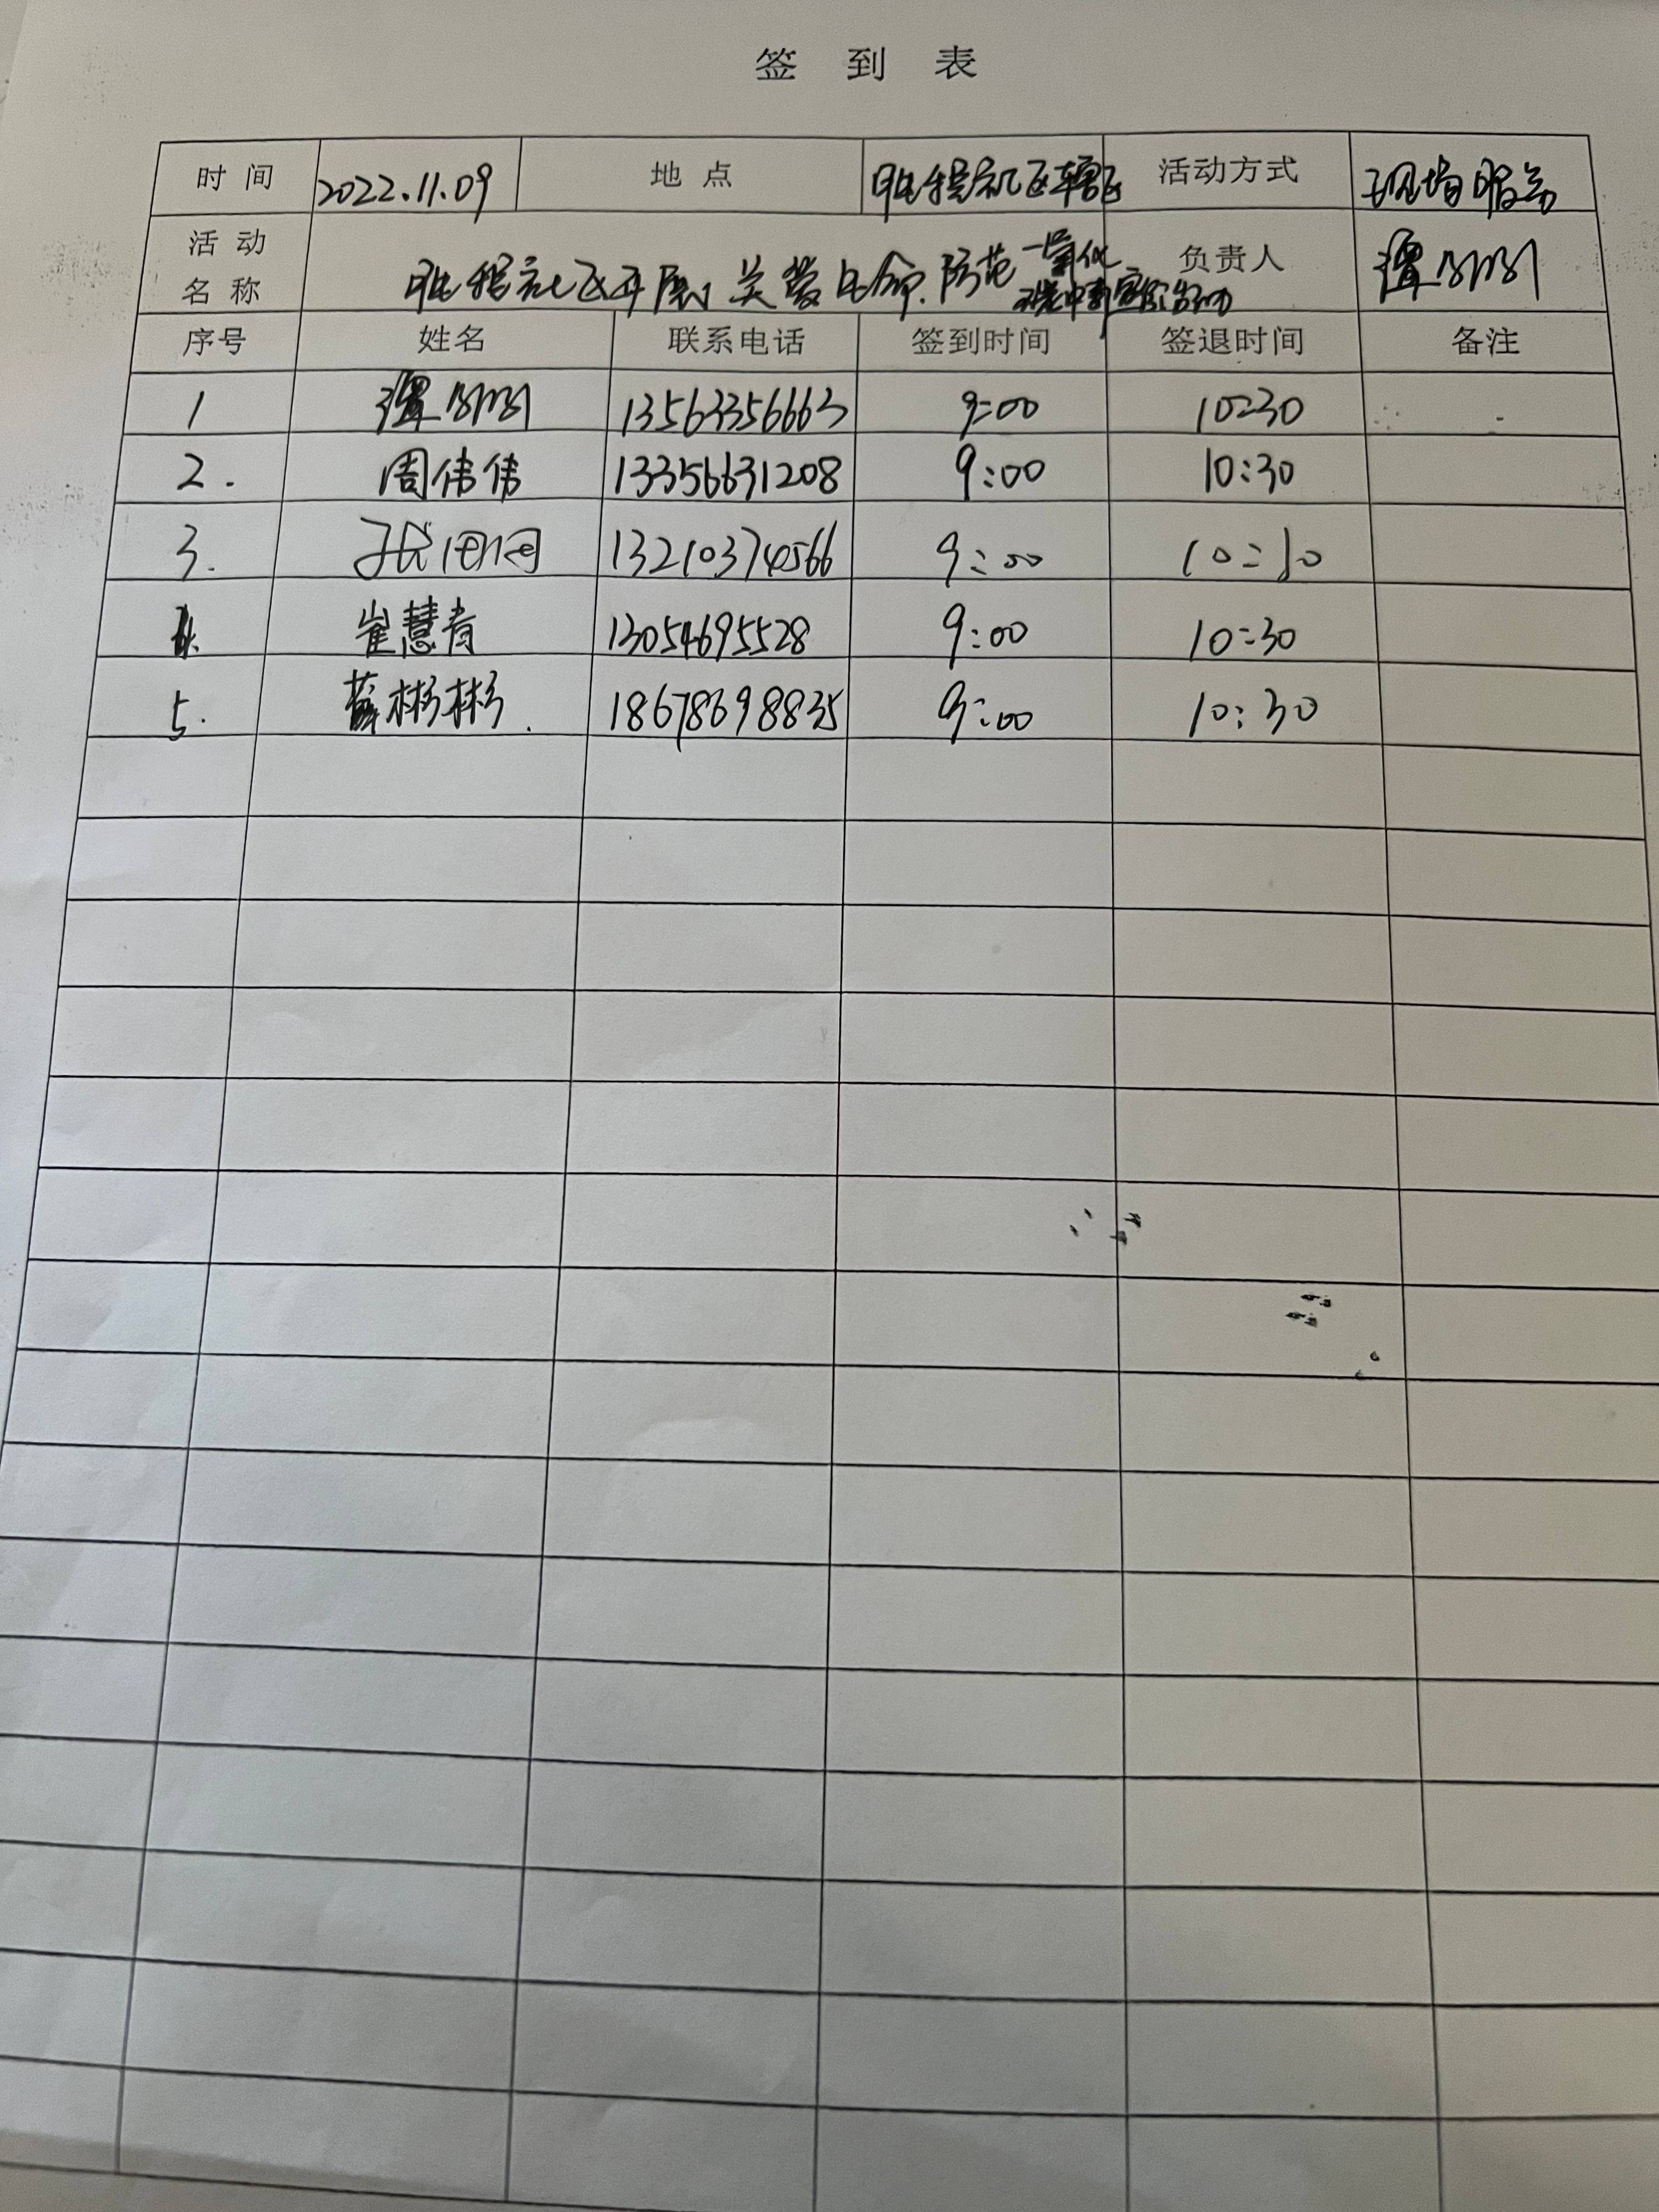 签 到 表
时 间 2022.11.09 地 点 胜提社区辖区 活动方式 现场服务
活 动
名 称 胜提社区开展关爱生命.防范一氧化 负责人 谭
碳中毒宣传活动
序号 姓名 联系电话 签到时间 签退时间 备注
1 谭 13563356663 9:00 10:30
2. 周伟伟 13356631208 9:00 10:30
3. 13210374566 9:00 10:30
4. 崔慧青 13054695528 9:00 10:30
5. 薛彬彬. 18678698835 9:00 10:30